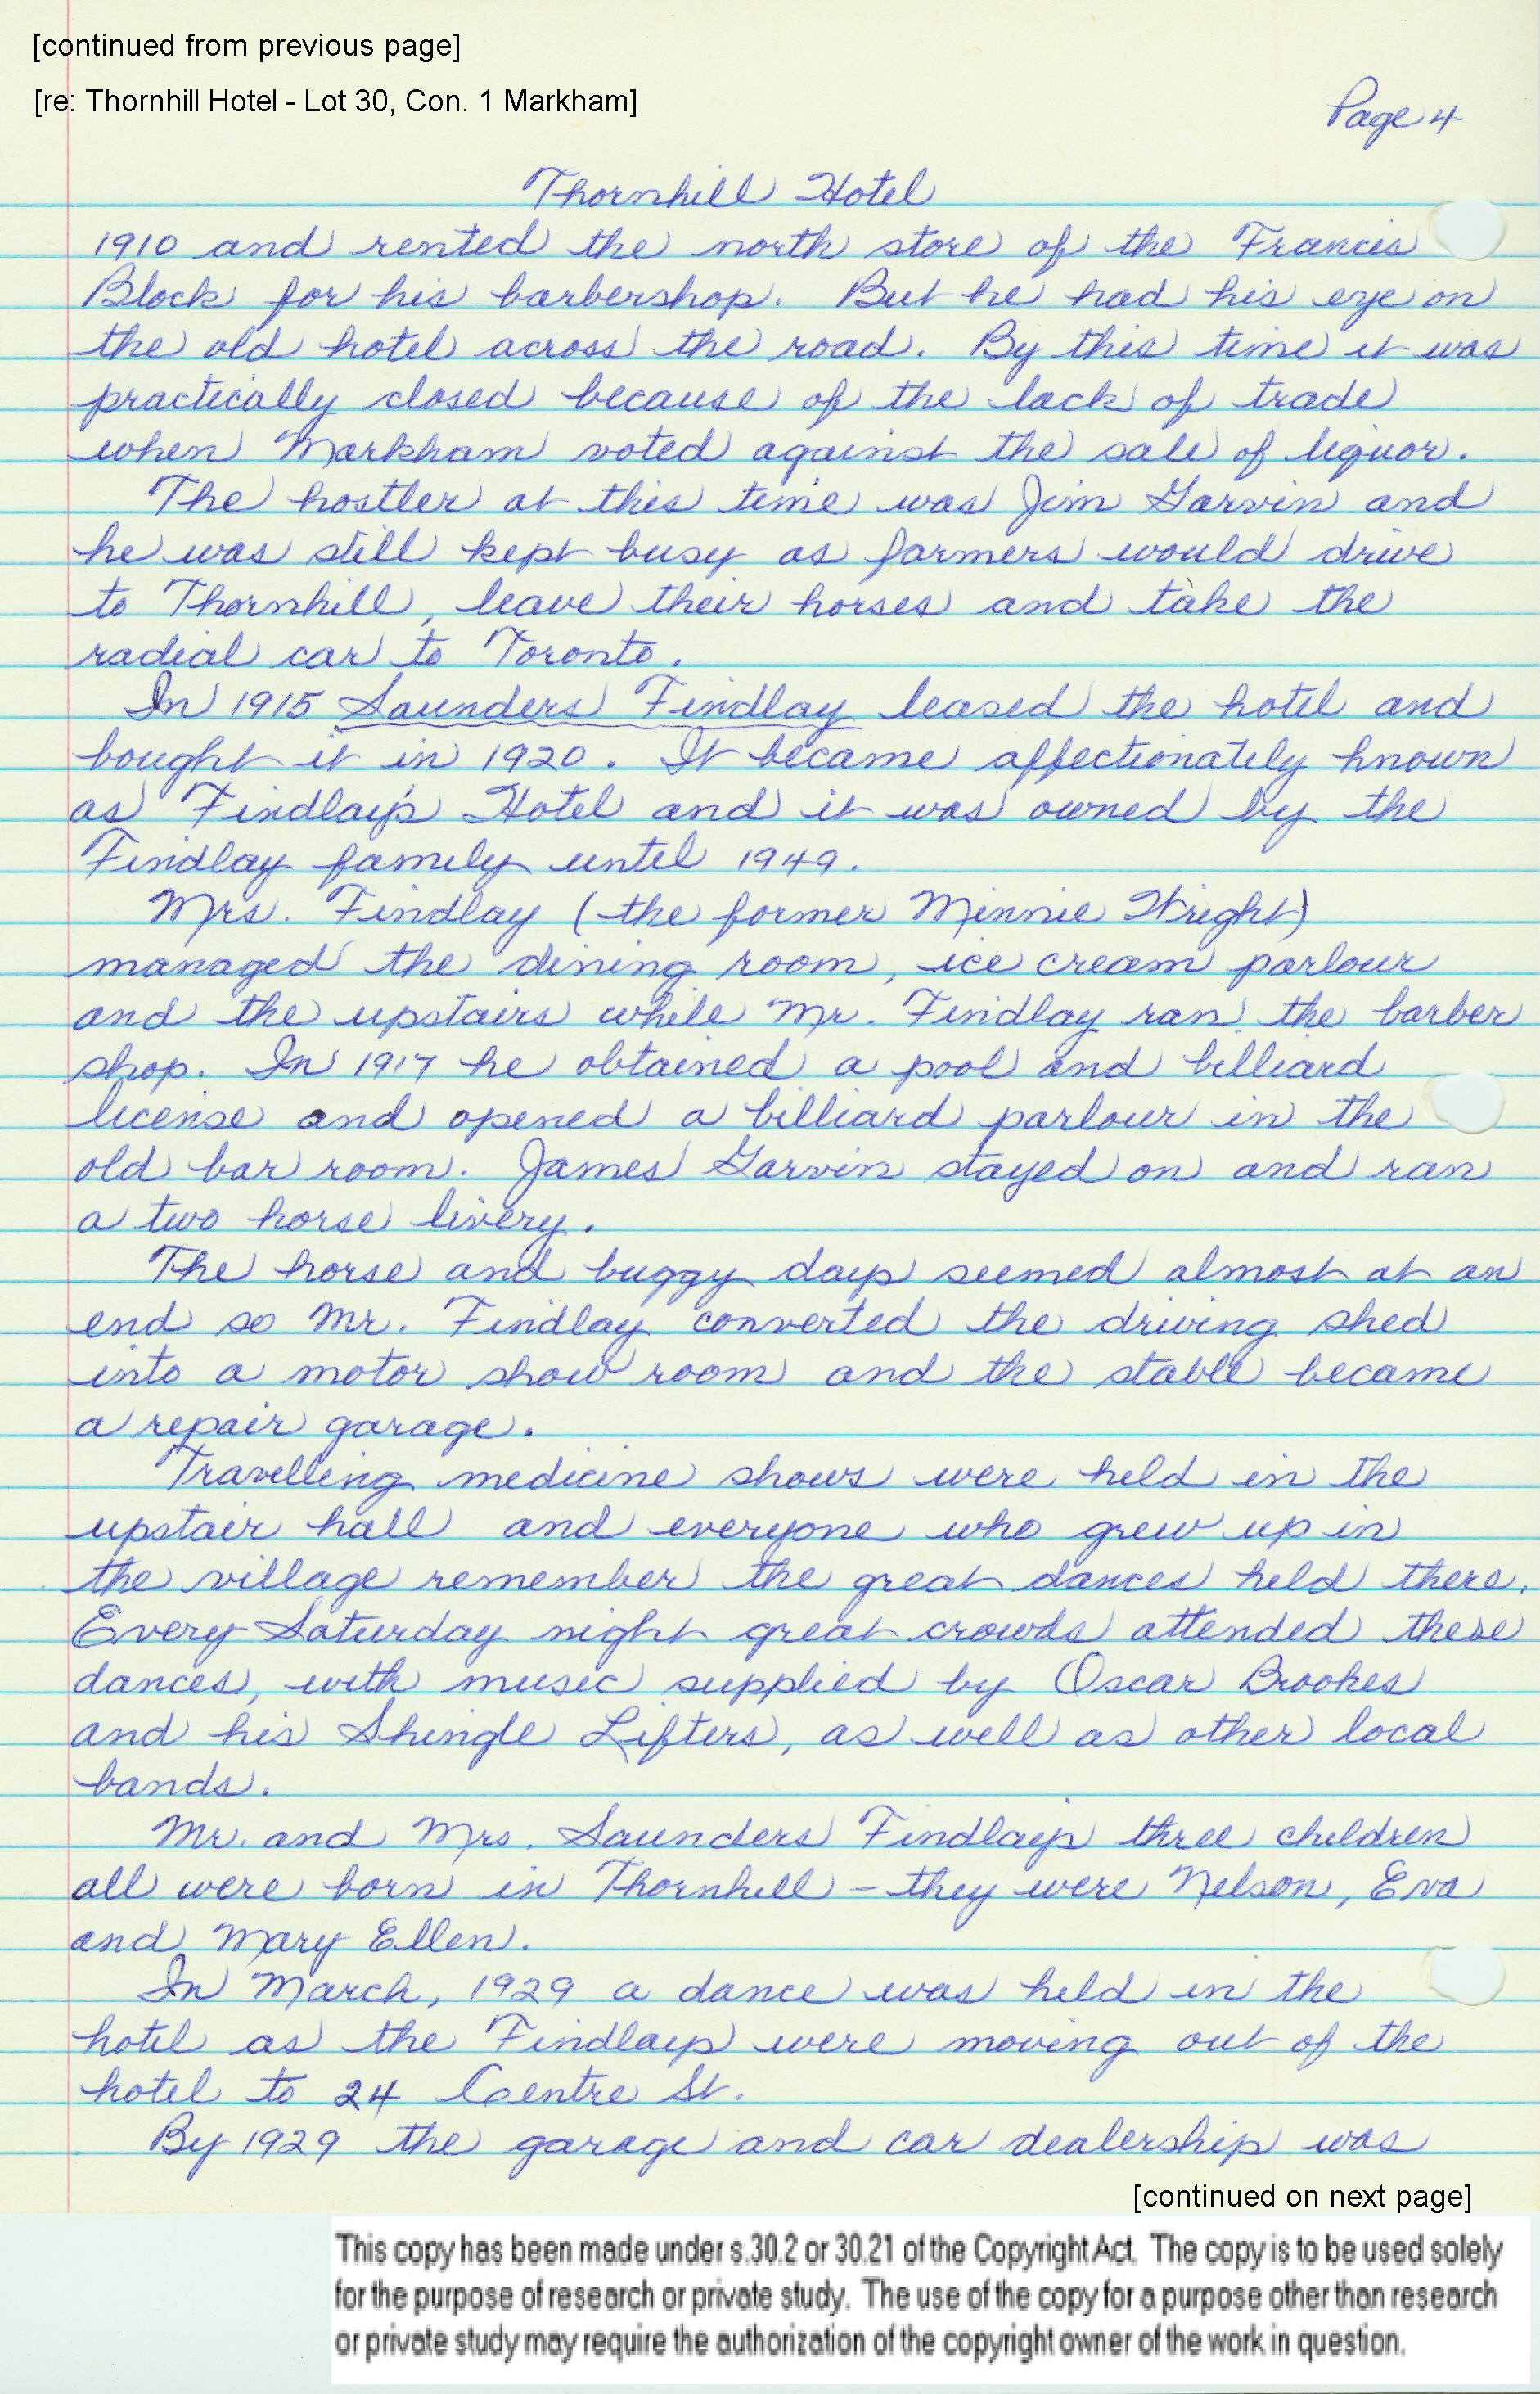 [continued from previous page]
[re: Thornhill Hotel - Lot 30, Con. 1 Markham]
Page 4
Thornhill Hotel
1910 and rented the north store of the Francis
Block for his barbershop. But he had his eye on
the old hotel across the road. By this time it was
practically closed because of the lack of trade
when Markham voted against the sale of liquor.
The hostler at this time was Jim Garvin and
he was still kept busy as farmers would drive
to Thornhill, leave their horses and take the
radial car to Toronto.
In 1915 Saunders Findlay leased the hotel and
bought it in 1920. It became affectionately known
as Findlay's Hotel and it was owned by the
Findlay family until 1949.
Mrs. Findlay (the former Minnie Wright)
managed the dining room, ice cream parlour
and the upstairs while Mr. Findlay ran the barber
shop. In 1917 he obtained a pool and billiard
license and opened a billiard parlour in the
old bar room. James Garvin stayed on and ran
a two horse livery.
The horse and buggy days seemed almost at an
end so Mr. Findlay converted the driving shed
into a motor show room and the stable became
a repair garage.
Travelling medicine shows were held in the
upstair hall and everyone who grew up in
the village remember the great dances held there.
Every Saturday night great crowds attended these
dances, with music supplied by Oscar Brookes
and his Shingle Lifters, as well as other local
bands.
Mr. and Mrs. Saunders Findlays three children
all were born in Thornhill - they were Nelson, Eva
and Mary Ellen.
In March, 1929 a dance was held in the
hotel as the Findlays were moving out of the
hotel to 24 Centre St.
By 1929 the garage and car dealership was
[continued on next page]
This copy has been made under s.30.2 or 30.21 of the Copyright Act. The copy is to be used solely
for the purpose of research or private study. The use of the copy for a purpose other than research
or private study may require the authorization of the copyright owner of the work in question.